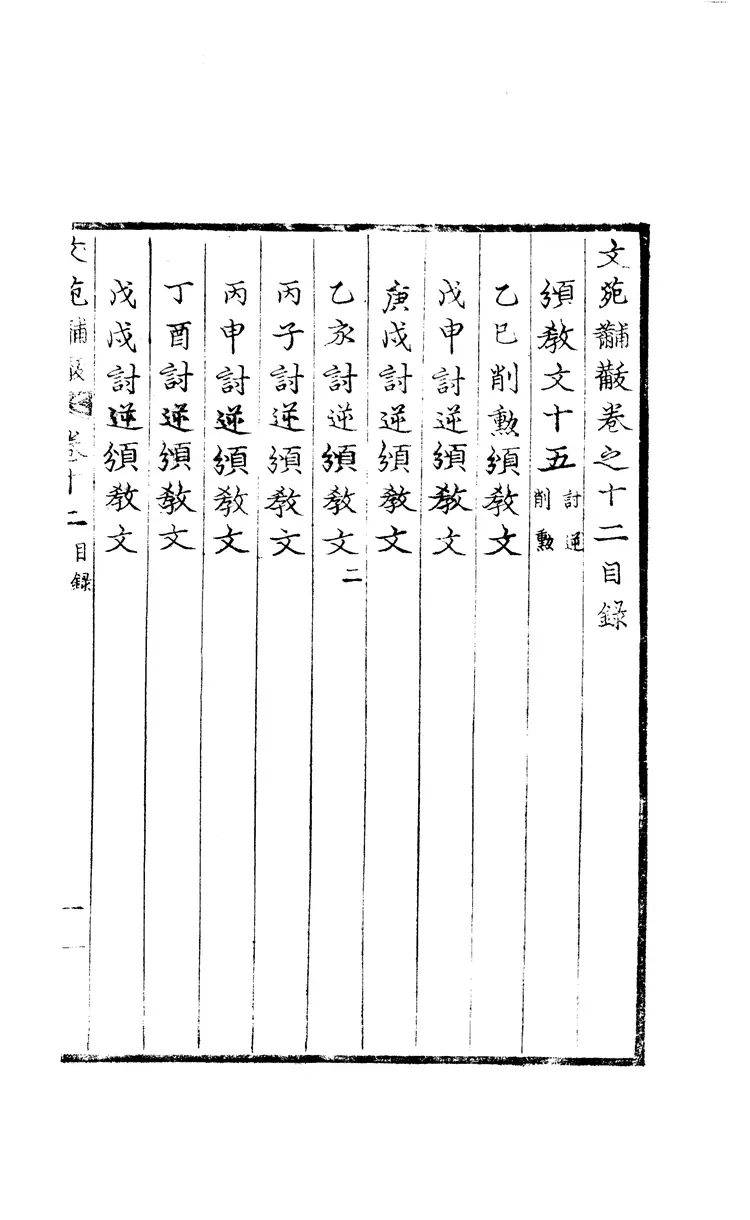 文苑黼黻卷之十二目錄
頒教文十五 討逆 削勳
乙巳削勳頒教文
戊申討逆頒教文
庚戌討逆頒教文
乙亥討逆頒教文二
丙子討逆頒教文
丙申討逆頒教文
丁酉討逆頒教文
戊戌討逆頒教文
文苑黼黻 卷十二 目錄 一